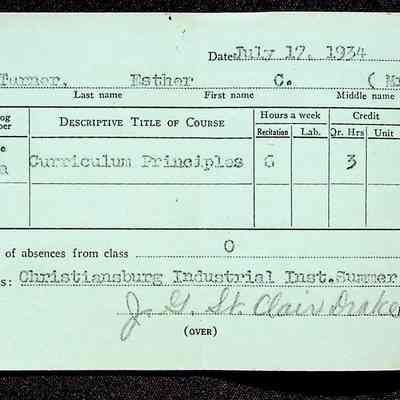 Date July 17, 1934
Turner, Esther C. (
Last name First name Middle name
Hours a week Credit
og DESCRIPTIVE TITLE OF COURSE Recitation Lab. Qr. Hrs Unit
ber
e
a Curriculum Principles 6 3
of absences from class 0
s: Christiansburg Industrial Inst. Summer
J. G. St. Clair Drake
(OVER)